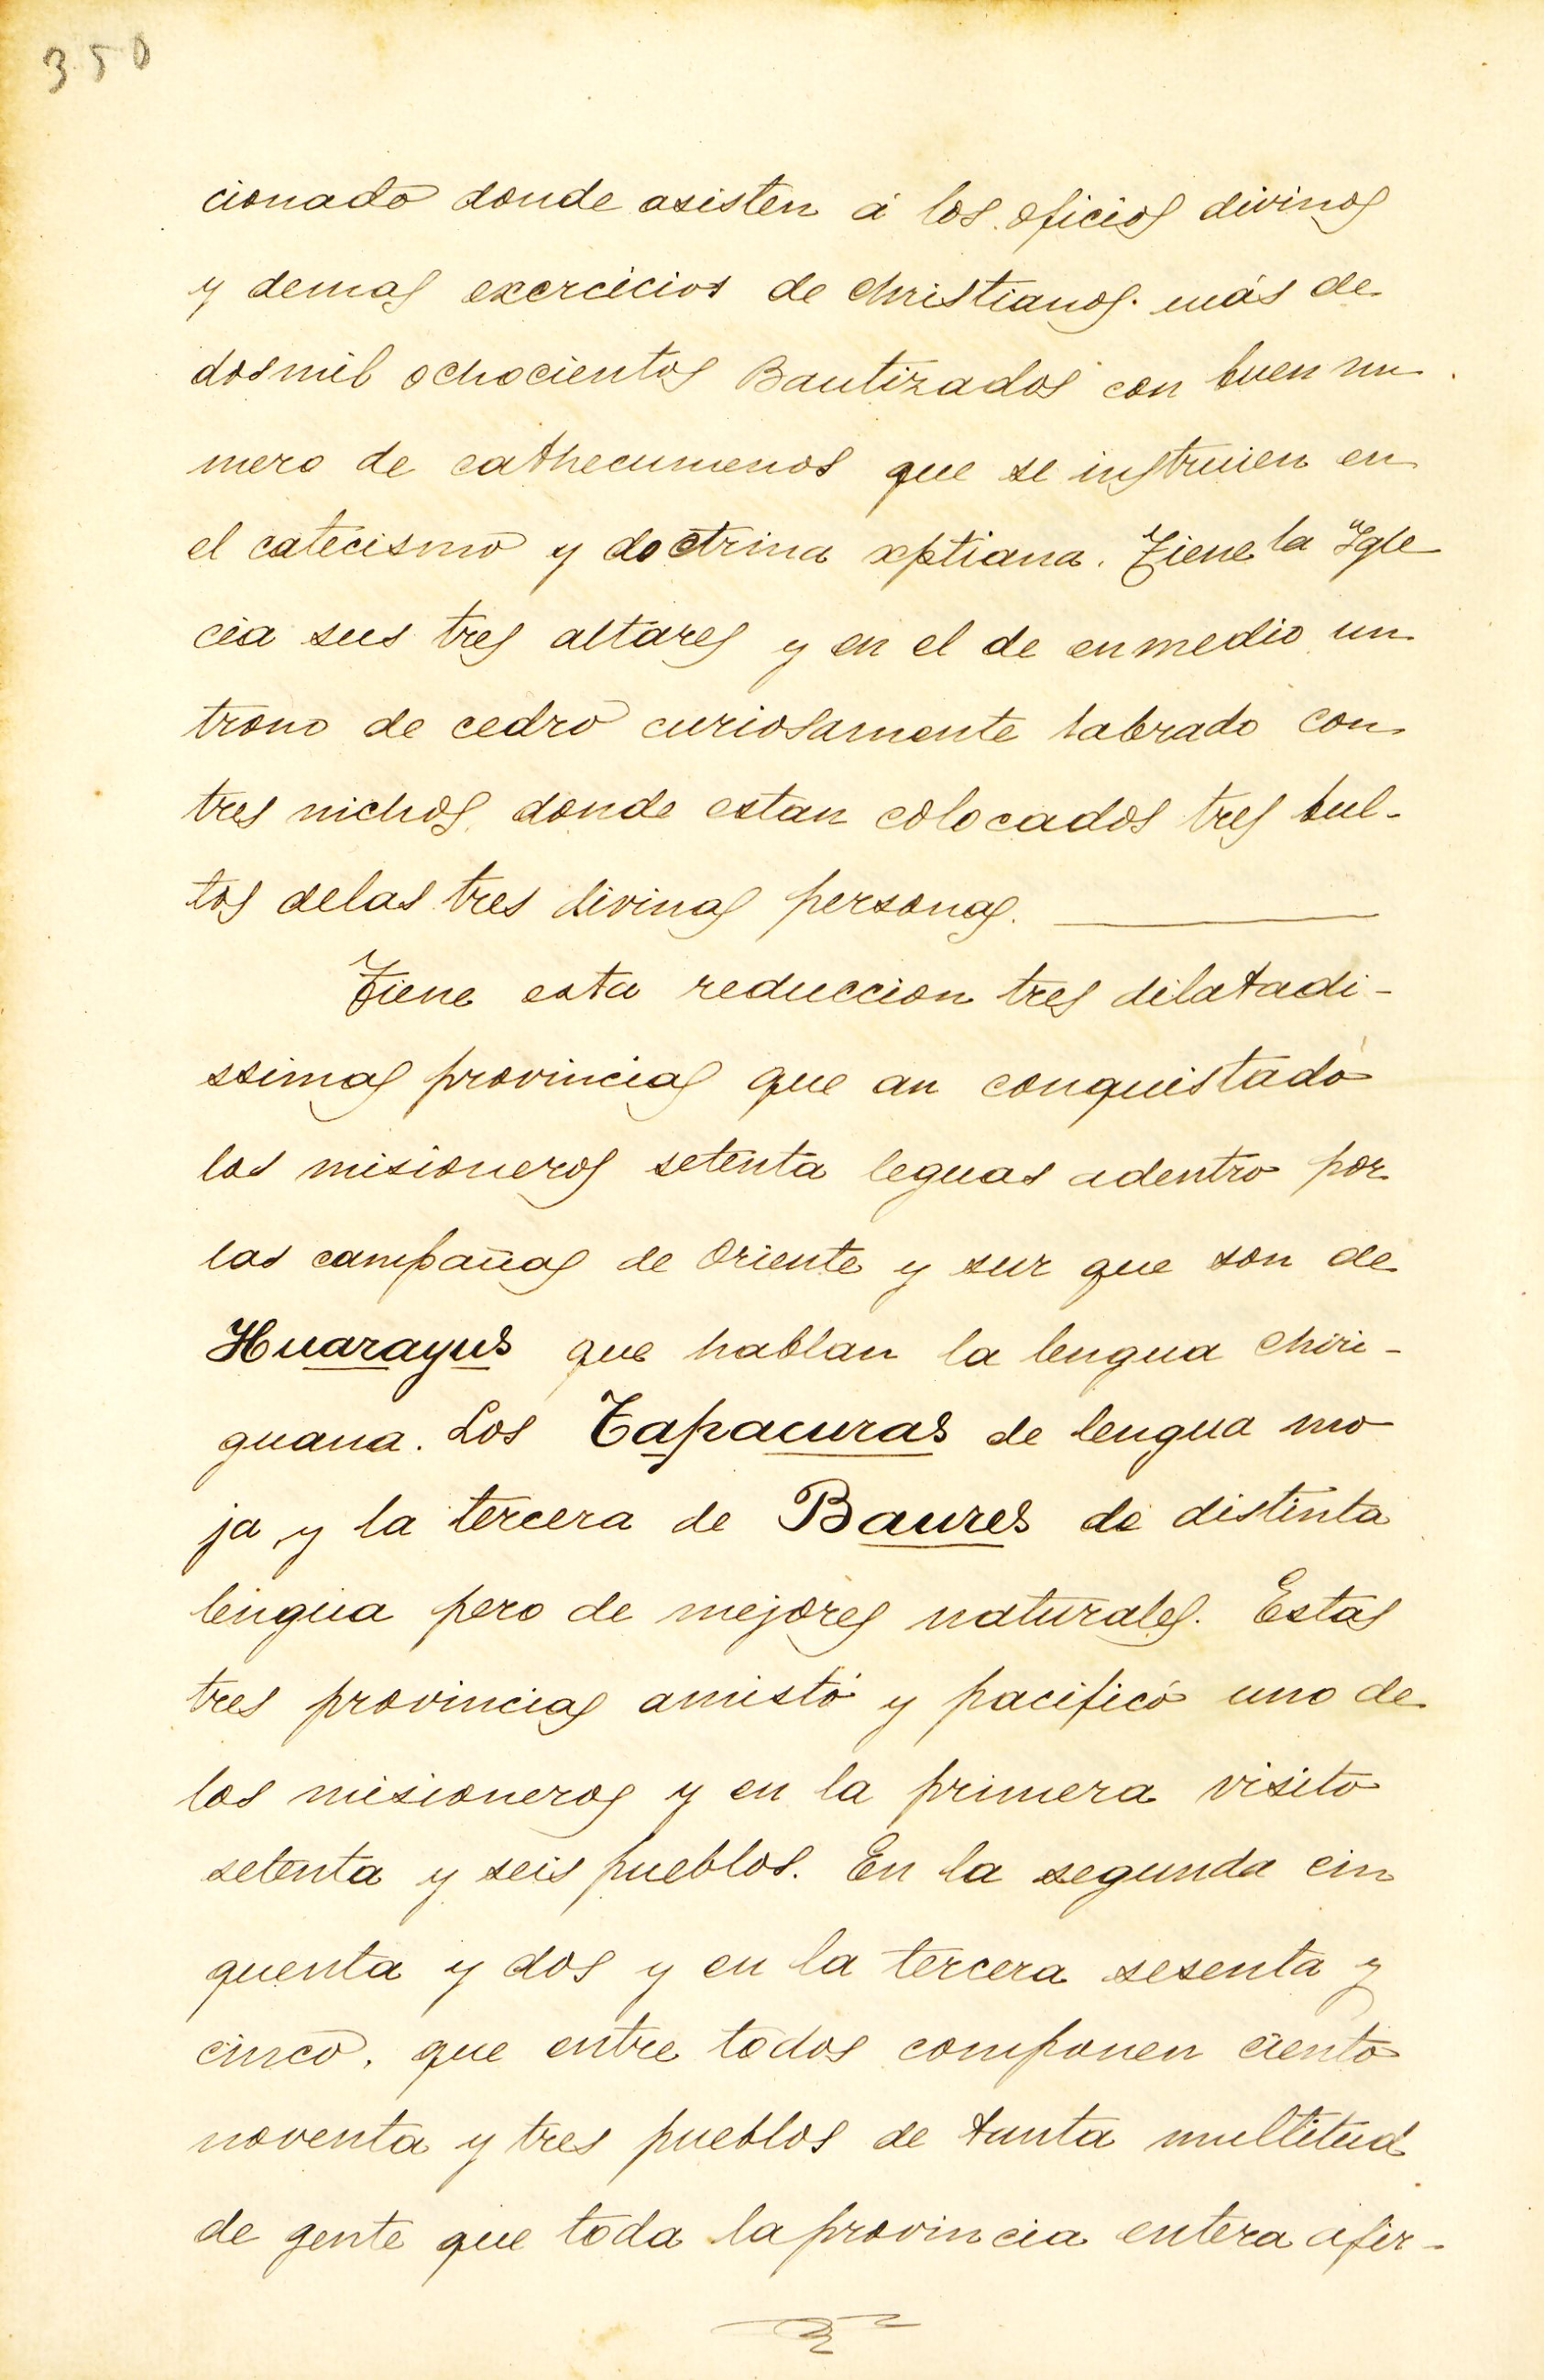 350
cionado donde asisten á los oficios divinos
y demas exercicios de christianos. más de
dosmil ochocientos Bautizados con buen nu
mero de cathecumenos que se instruien en
el catecismo y doctrina xptiana. Tiene la Igle
cia sus tres altares y en el de enmedio un
trono de cedro curiosamente labrado con
tres nichos donde estan colocados tres bul-
tos delas tres divinas personas.
Tiene esta reduccion tres dilatadi-
ssimas provincias que an conquistado
los misioneros setenta leguas adentro por
las campañas de Oriente y sur que son de
Huarayus que hablan la lengua chiri-
guana. Los Tapacuras de lengua mo
ja y la tercera de Baures de distinta
lengua pero de mejores naturales. Estas
tres provincias amistó y pacificó uno de
los misioneros y en la primera visito
setenta y seis pueblos. En la segunda cin
quenta y dos y en la tercera sesenta y
cinco. que entre todos componen ciento
noventa y tres pueblos de tanta multitud
de gente que toda la provincia entera afir-